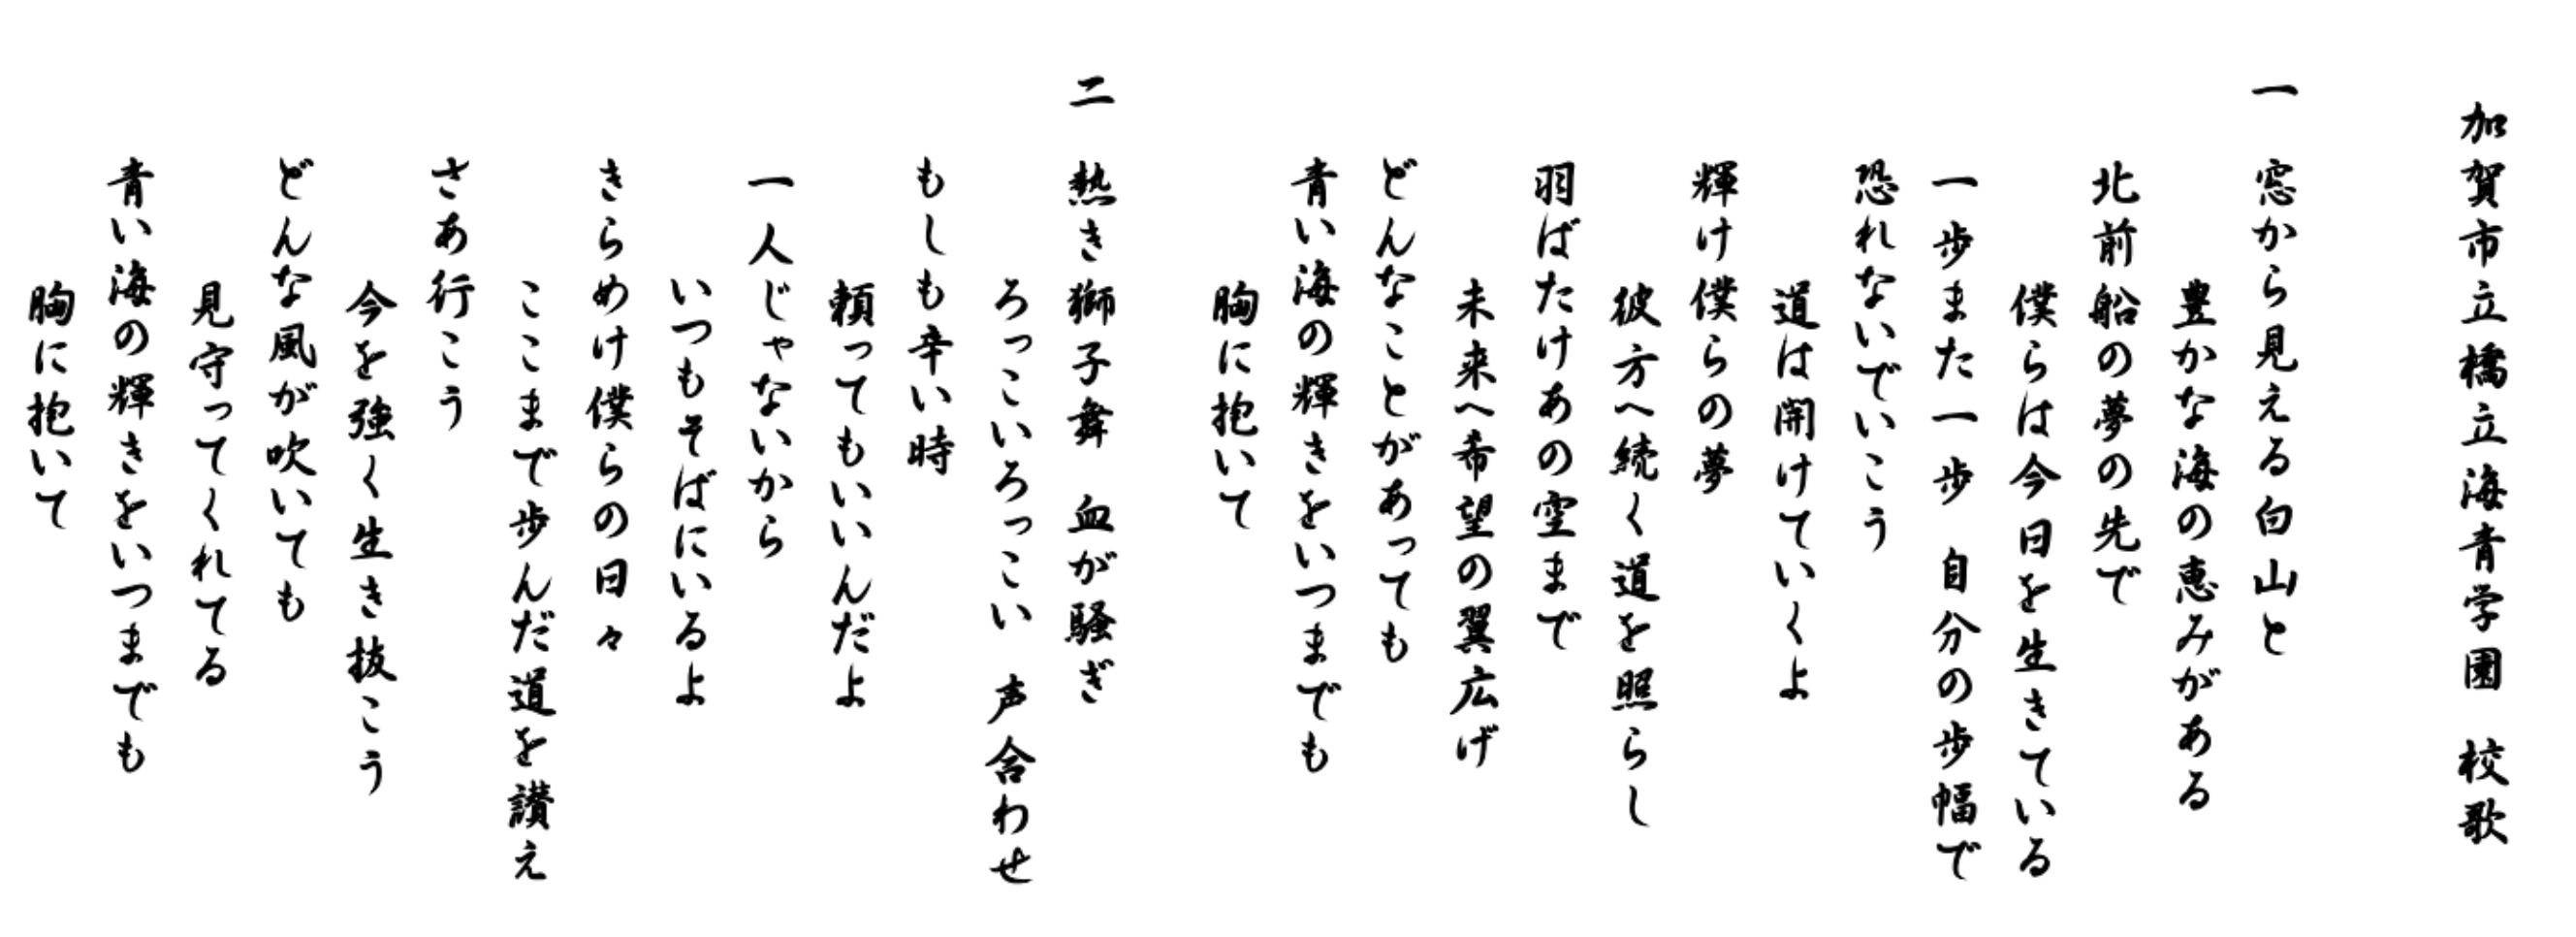 加賀市立橋立海青学園 校歌
一 窓から見える白山と
豊かな海の恵みがある
北前船の夢の先で
僕らは今日を生きている
一歩また一歩 自分の歩幅で
恐れないでいこう
道は開けていくよ
輝け僕らの夢
彼方へ続く道を照らし
羽ばたけあの空まで
未来へ希望の翼広げ
どんなことがあっても
青い海の輝きをいつまでも
胸に抱いて
二 熱き獅子舞 血が騒ぎ
ろっこいろっこい 声合わせ
もしも辛い時
頼ってもいいんだよ
一人じゃないから
いつもそばにいるよ
きらめけ僕らの日々
ここまで歩んだ道を讃え
さあ行こう
今を強く生き抜こう
どんな風が吹いても
見守ってくれてる
青い海の輝きをいつまでも
胸に抱いて